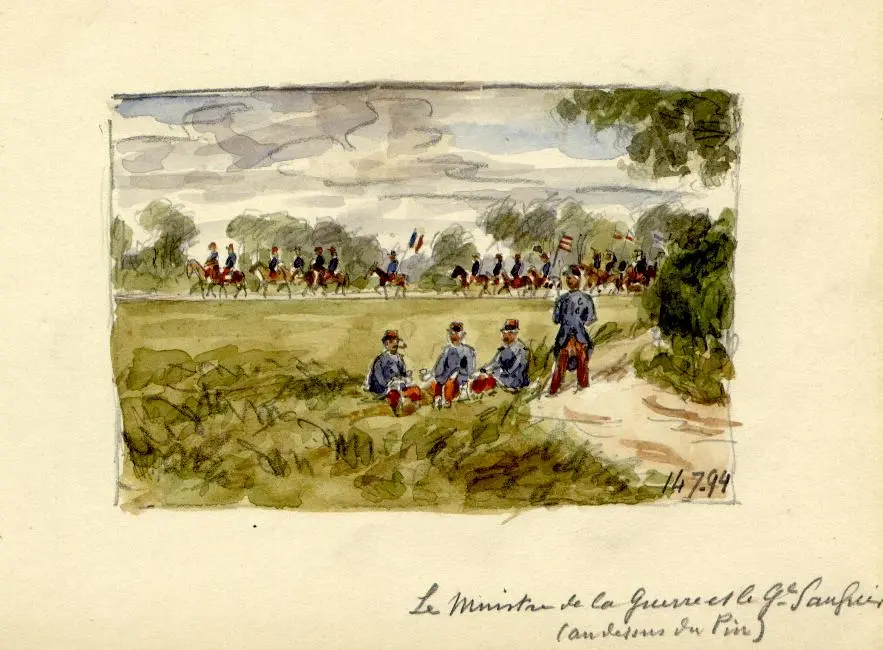 14-7-94
Le Ministre de la Guerre et le Gal Saussier
(au dessous du Pin)